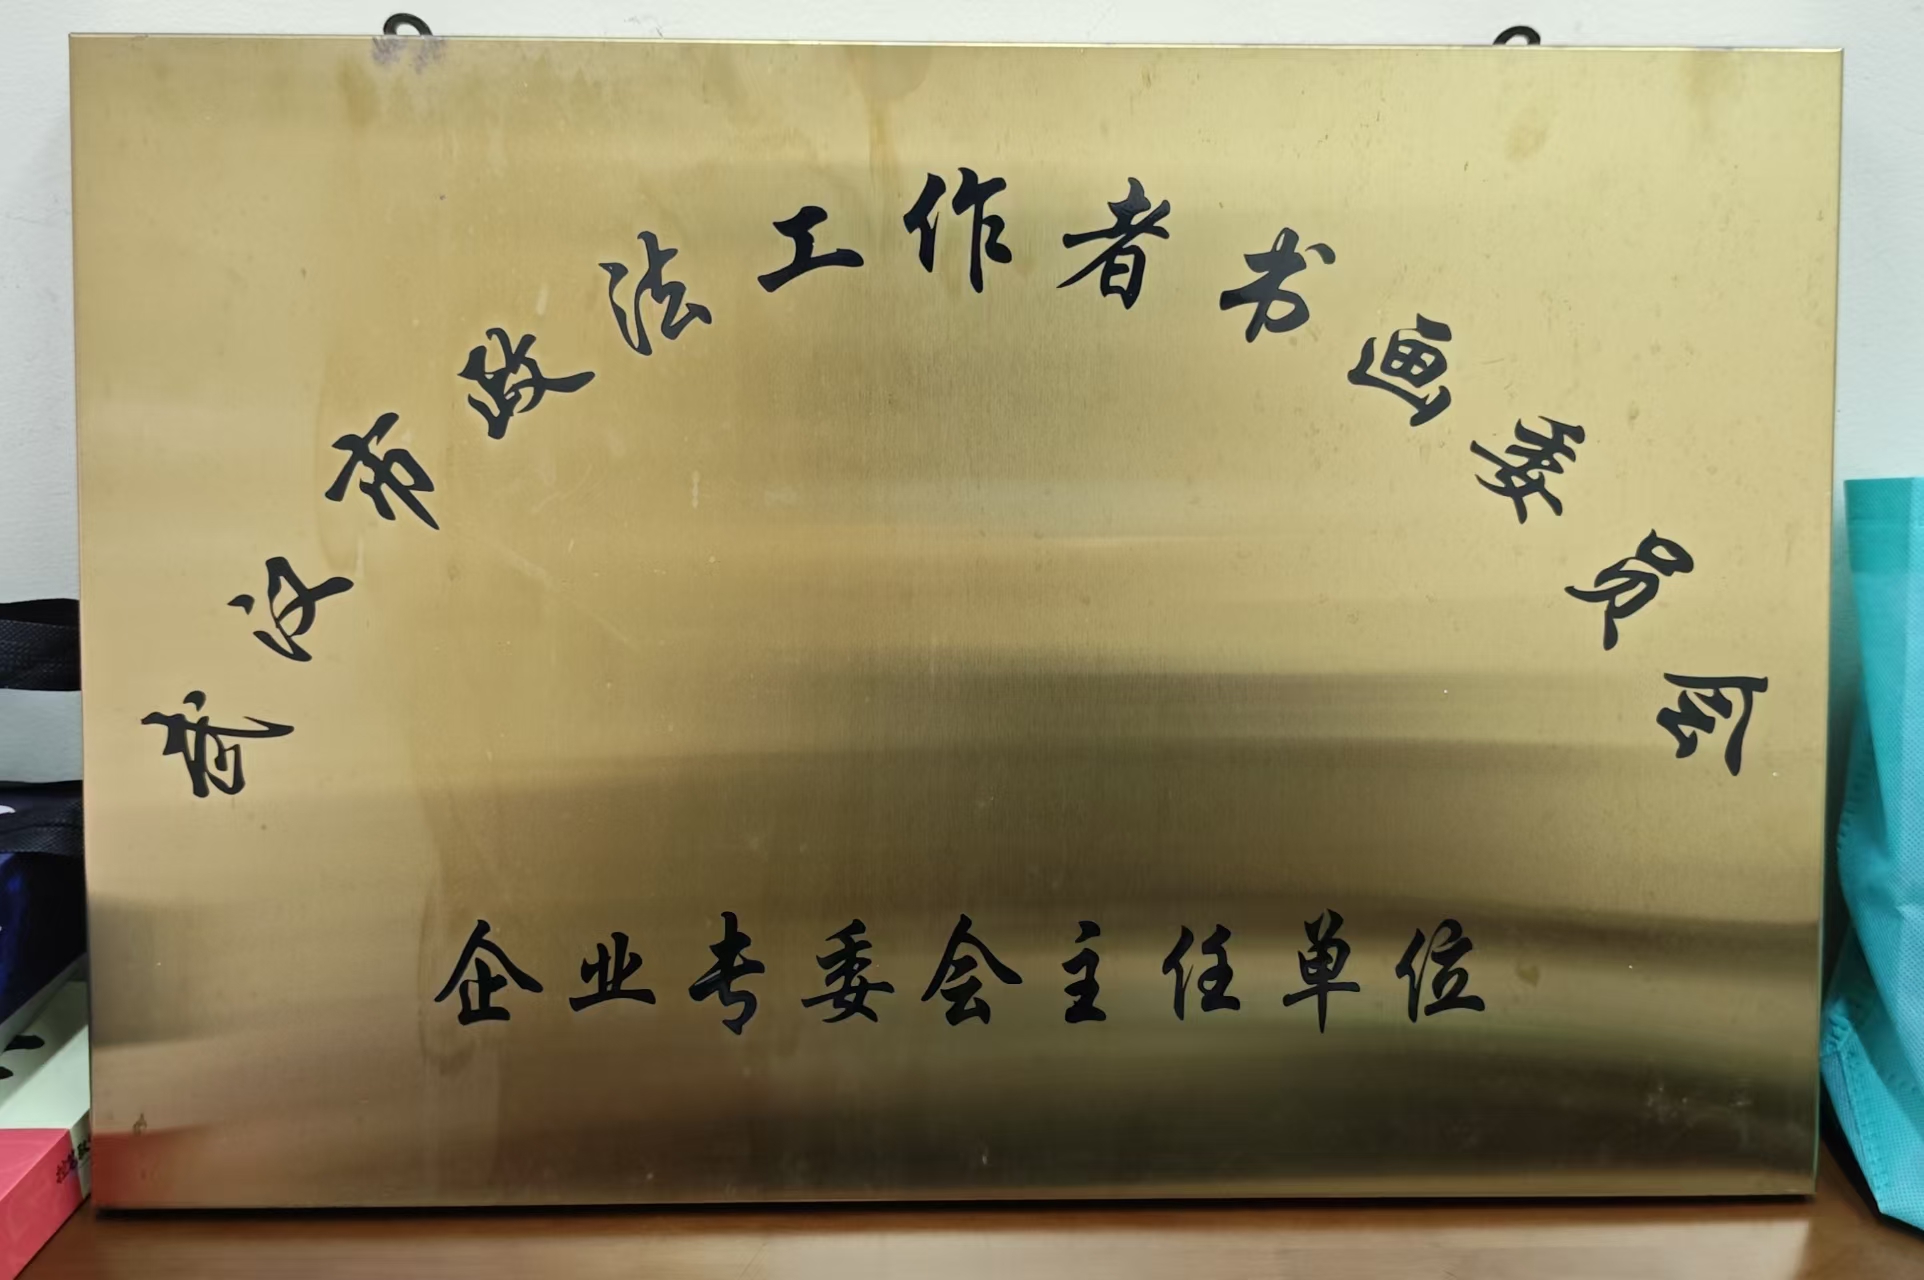 武汉市政法工作者书画委员会
企业专委会主任单位